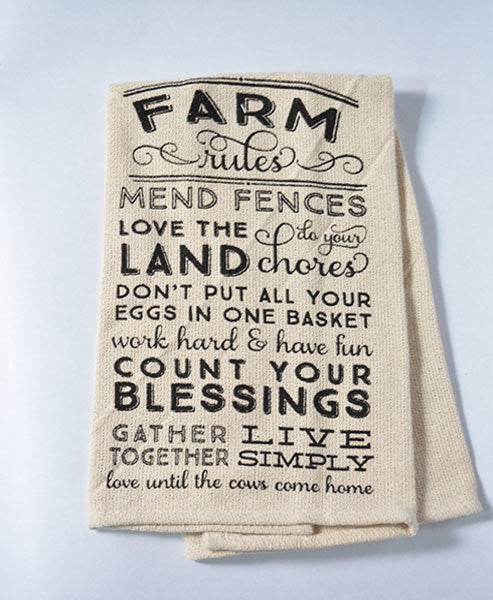 FARM
rules
MEND FENCES
LOVE THE
LAND
do your
chores
DON'T PUT ALL YOUR
EGGS IN ONE BASKET
work hard & have fun
COUNT YOUR
BLESSINGS
GATHER
TOGETHER
LIVE
SIMPLY
love until the cows come home